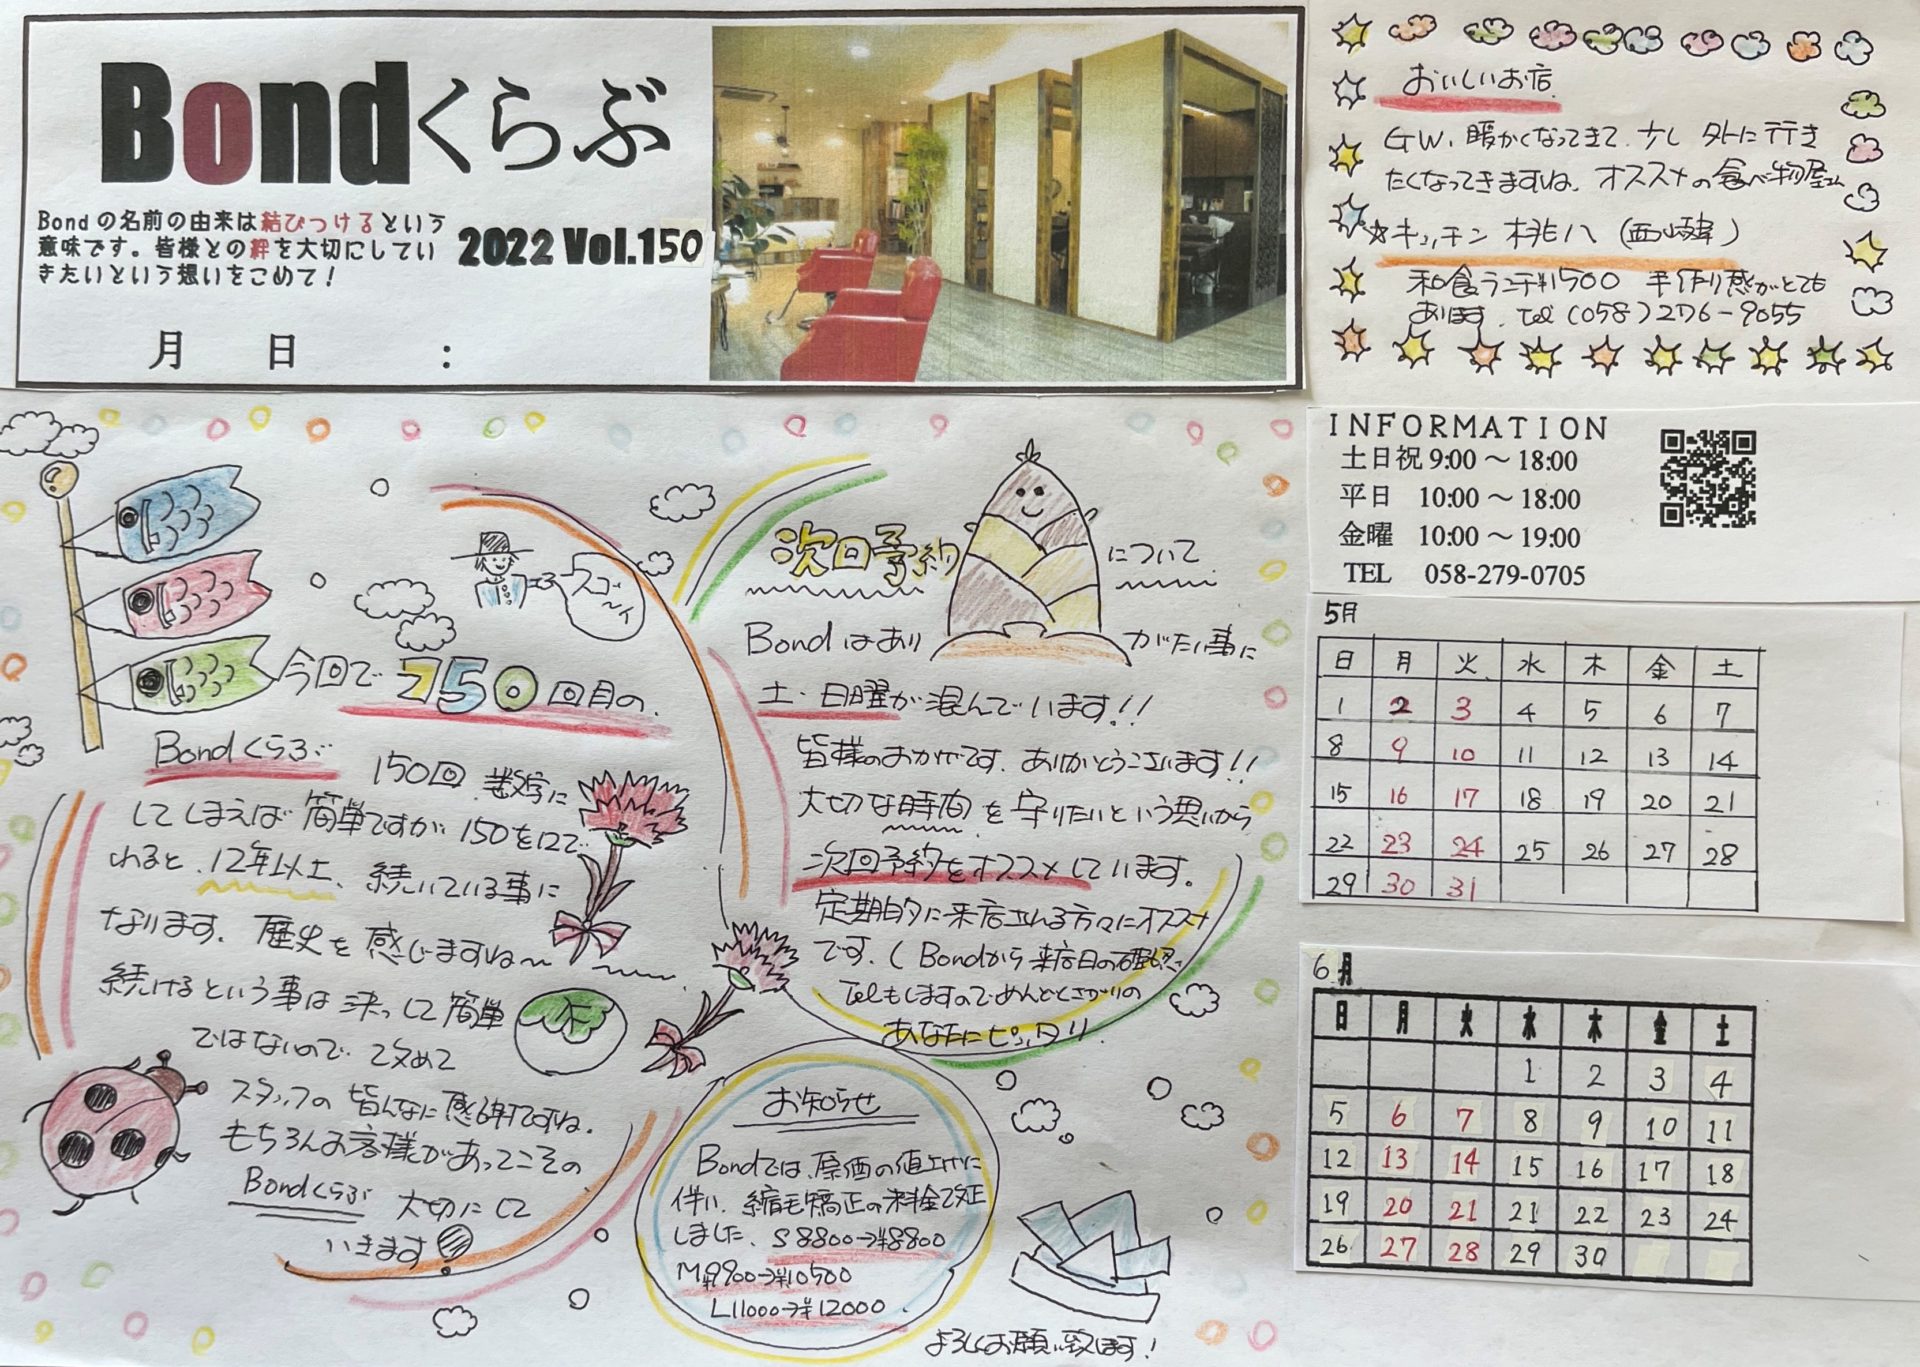 Bondくらぶ
Bondの名前の由来は結びつけるという
意味です。皆様との絆を大切にしてい
きたいという想いをこめて！
2022 Vol.150
月 日 :
おいしいお店
GW、暖かくなってきて、少し外に行き
たくなってきますね。オススメの食べ物屋さん
☆キッチン 桃八(西山崎韓)
和食ランチ¥1500 手作り感がとても
あります。Tel(058)276-9055
INFORMATION
土日祝 9:00～18:00
平日 10:00～18:00
金曜 10:00～19:00
TEL 058-279-0705
スゴーイ
今回で150回目の
Bondくらぶ
150回、数字に
してしまえば簡単ですが150を12で
わると、12年以上、続いている事に
なります。歴史を感じますね～
続けるという事は決して簡単
ではないので、改めて
スタッフの皆んなに感謝ですね。
もちろんお客様があってこその
Bondくらぶ 大切にして
いきます
次回予約について
Bondはありがたい事に
土・日曜が混んでいます!!
皆様のおかげです。ありがとうございます!!
大切な時間を守りたいという思いから
次回予約をオススメしています。
定期的に来店される方々にオススメ
です。(Bondから来店日の確認
Telもしますので、めんどくさがりの
あなたにピッタリ
お知らせ
Bondでは、原価の値上げに
伴い、縮毛矯正の料金改正
しました。S 8800→¥8800
M¥9900→¥10500
L11000→¥12000
よろしくお願い致します!
5月
日 月 火 水 木 金 土
1 2 3 4 5 6 7
8 9 10 11 12 13 14
15 16 17 18 19 20 21
22 23 24 25 26 27 28
29 30 31
6月
日 月 火 水 木 金 土
1 2 3 4
5 6 7 8 9 10 11
12 13 14 15 16 17 18
19 20 21 21 22 23 24
26 27 28 29 30